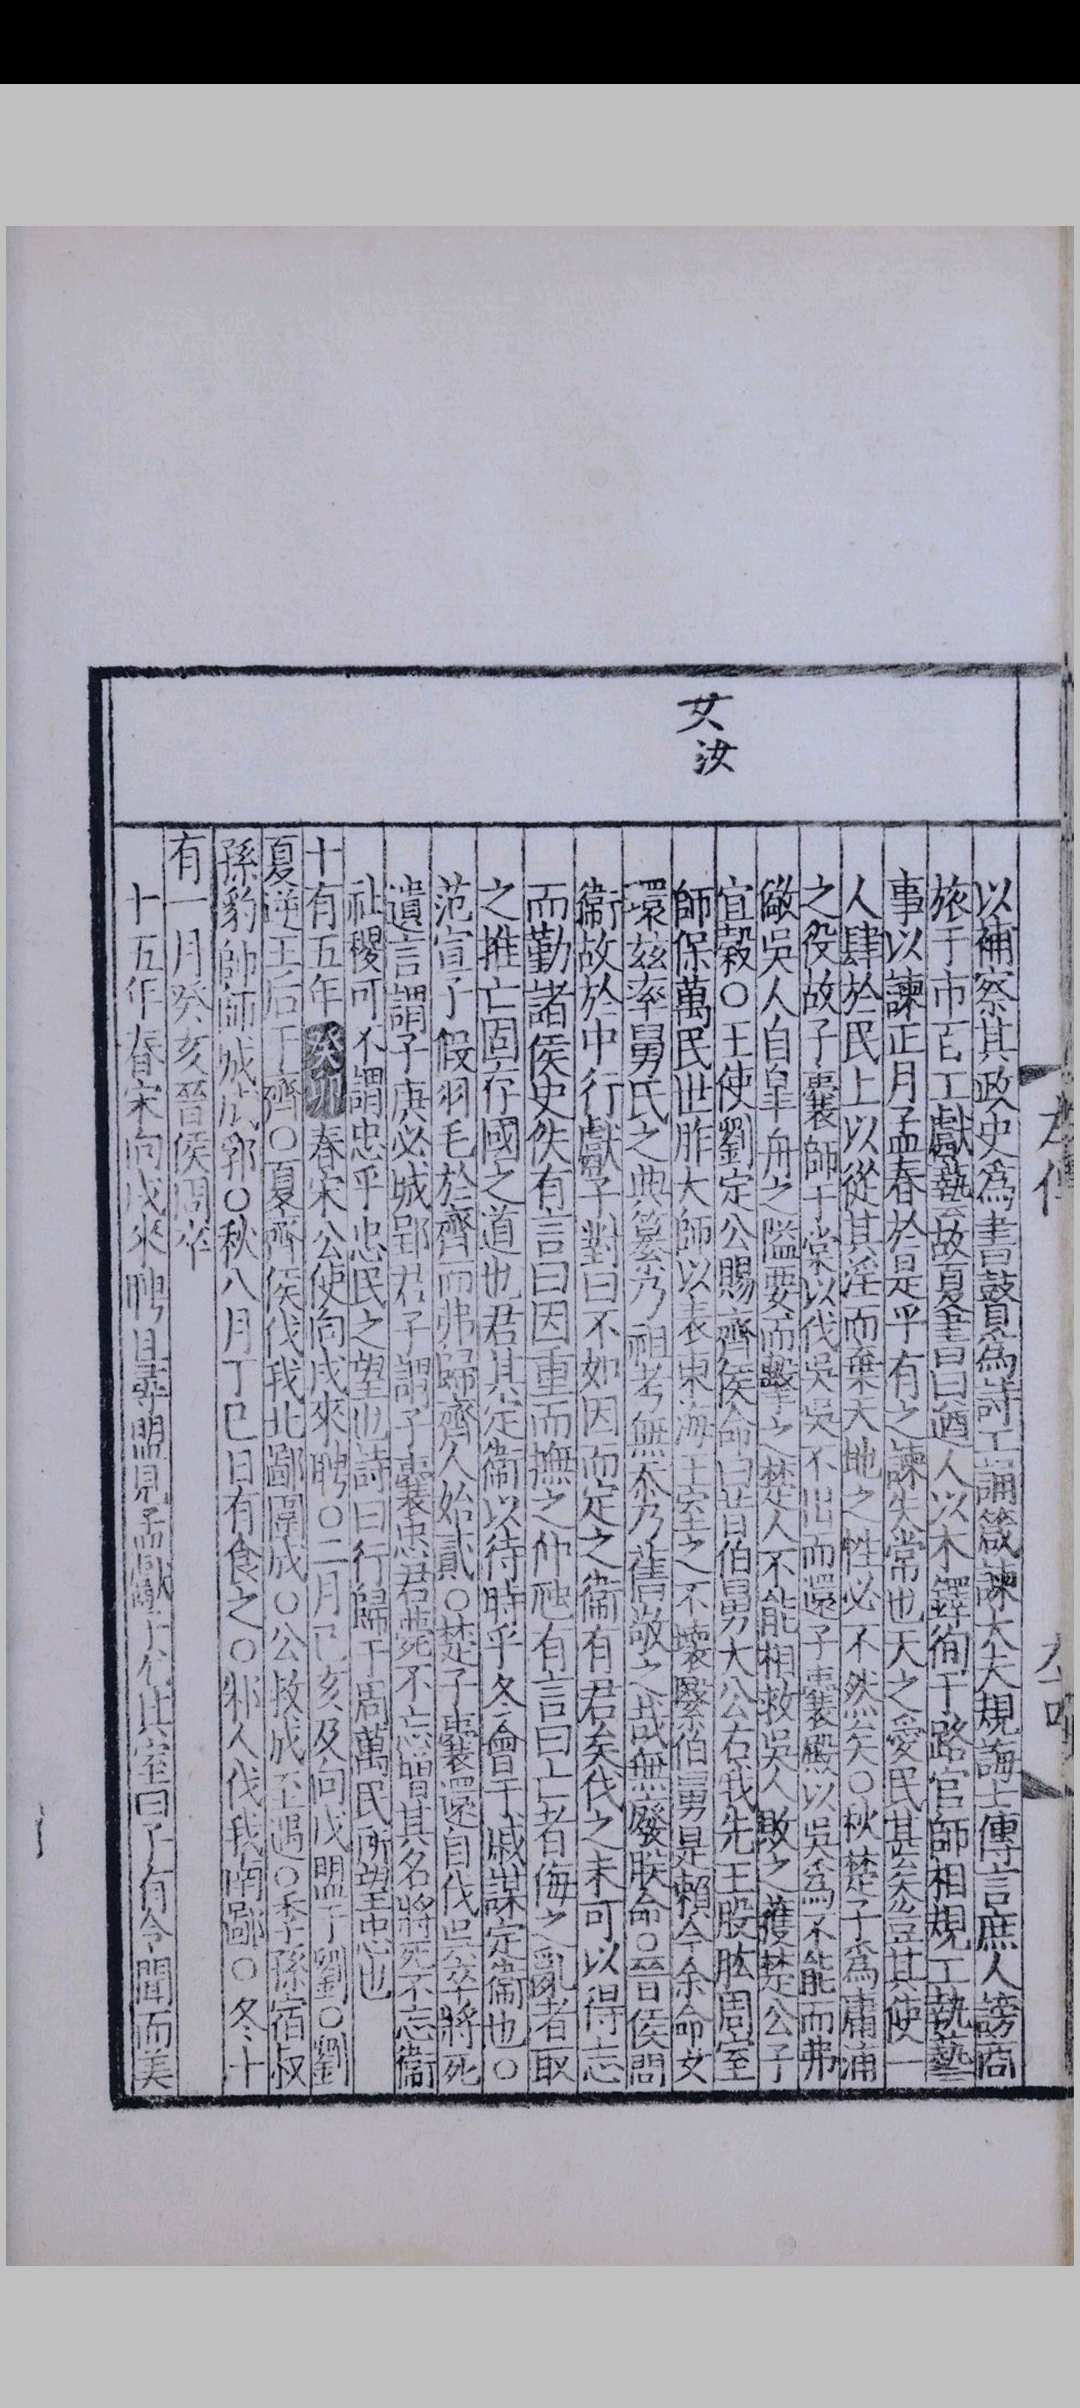 女
汝
以補察其政史為書瞽為詩工誦箴諫大夫規誨士傳言庶人謗商
旅于市百工獻藝故夏書曰遒人以木鐸徇于路官師相規工執藝
事以諫正月孟春於是乎有之諫失常也天之愛民甚矣豈其使一
人肆於民上以從其淫而棄天地之性必不然矣○秋楚子為庸浦
之役故子囊師于棠以伐吳吳不出而還子囊殿以吳為不能而弗
儆吳人自皐舟之隘要而擊之楚人不能相救吳人敗之獲楚公子
宜穀○王使劉定公賜齊侯命曰昔伯舅大公右我先王股肱周室
師保萬民世胙大師以表東海王室之不壞繄伯舅是賴今余命女
環茲率舅氏之典纂乃祖考無忝乃舊敬之哉無廢朕命○晉侯問
衛故於中行獻子對曰不如因而定之衛有君矣伐之未可以得志
而勤諸侯史佚有言曰因重而撫之仲虺有言曰亡者侮之亂者取
之推亡固存國之道也君其定衛以待時乎冬會于戚謀定衛也○
范宣子假羽毛於齊而弗歸齊人始貳○楚子囊還自伐吳卒將死
遺言謂子庚必城郢君子謂子囊忠君薨不忘增其名將死不忘衛
社稷可不謂忠乎忠民之望也詩曰行歸于周萬民所望忠也
十有五年癸卯春宋公使向戌來聘○二月己亥及向戌盟于劉○劉
夏逆王后于齊○夏齊侯伐我北鄙圍成○公救成至遇○季孫宿叔
孫豹帥師城成郛○秋八月丁巳日有食之○邾人伐我南鄙○冬十
有一月癸亥晉侯周卒
十五年春宋向戌來聘且尋盟見孟獻子尤其室曰子有令聞而美